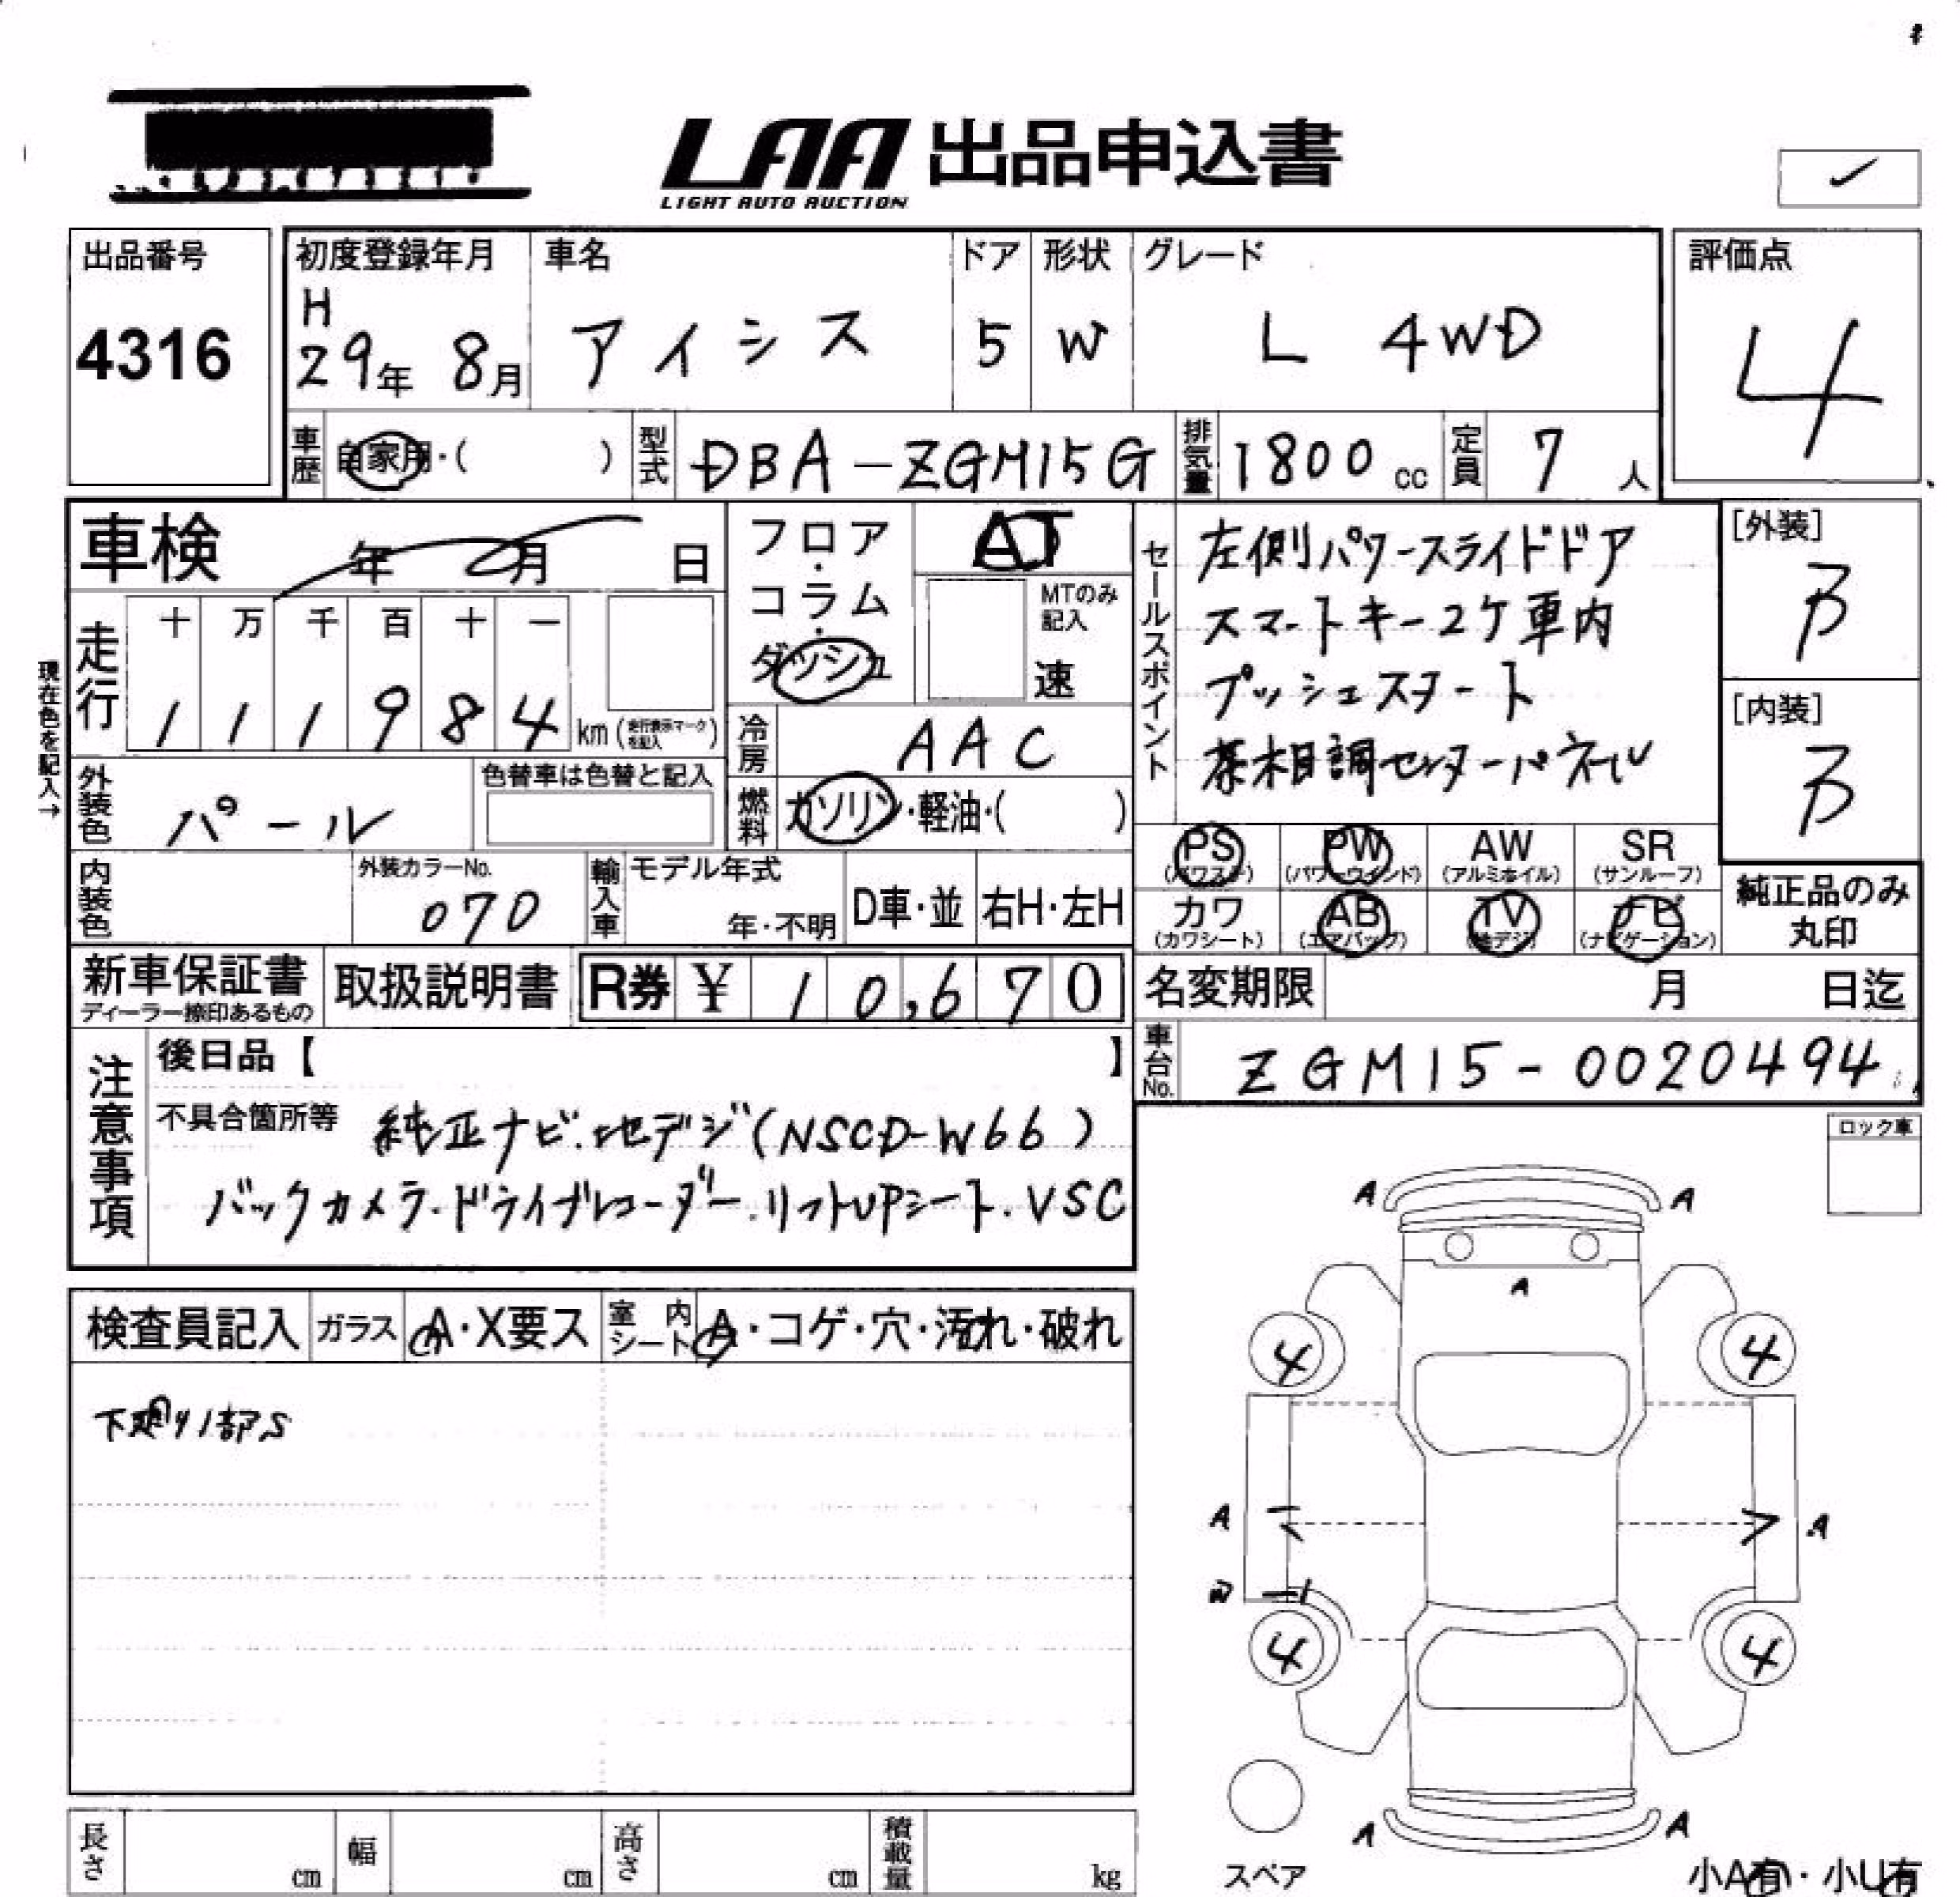 LAA 出品申込書
LIGHT AUTO AUCTION
出品番号
4316
初度登録年月
H
29年 8月
車名
アイシス
ドア
5
形状
W
グレード
L 4WD
評価点
4
車歴
自家用・( )
型式
DBA-ZGM15G
排気量
1800 cc
定員
7 人
車検
年 月 日
フロア・コラム・ダッシュ
AT
MTのみ記入
速
セールスポイント
左側パワースライドドア
スマートキー2ケ車内
プッシュスタート
茶木目調センターパネル
[外装]
B
[内装]
B
現在色を記入→
走行
十 万 千 百 十 一
1 1 1 9 8 4 km (走行表示マークを記入)
冷房
AAC
外装色
パール
色替車は色替と記入
燃料
ガソリン・軽油・( )
PS
(パワステ)
PW
(パワーウインド)
AW
(アルミホイル)
SR
(サンルーフ)
カワ
(カワシート)
AB
(エアバッグ)
TV
(地デジ)
ナビ
(ナビゲーション)
純正品のみ
丸印
内装色
外装カラーNo.
070
輸入車
モデル年式
年・不明
D車・並
右H・左H
新車保証書
ディーラー捺印あるもの
取扱説明書
R券 ¥ 10,670
名変期限
月 日迄
車台No.
ZGM15-0020494
注意事項
後日品【 】
不具合箇所等
純正ナビ.地デジ(NSCD-W66)
バックカメラ.ドライブレコーダー.リフトUPシート.VSC
ロック車
検査員記入
ガラス
A・X要ス
室内シート
A・コゲ・穴・汚れ・破れ
A A
A
4 4
A A
W
4 4
A A
スペア
小A有・小U有
長さ cm
幅 cm
高さ cm
積載量 kg